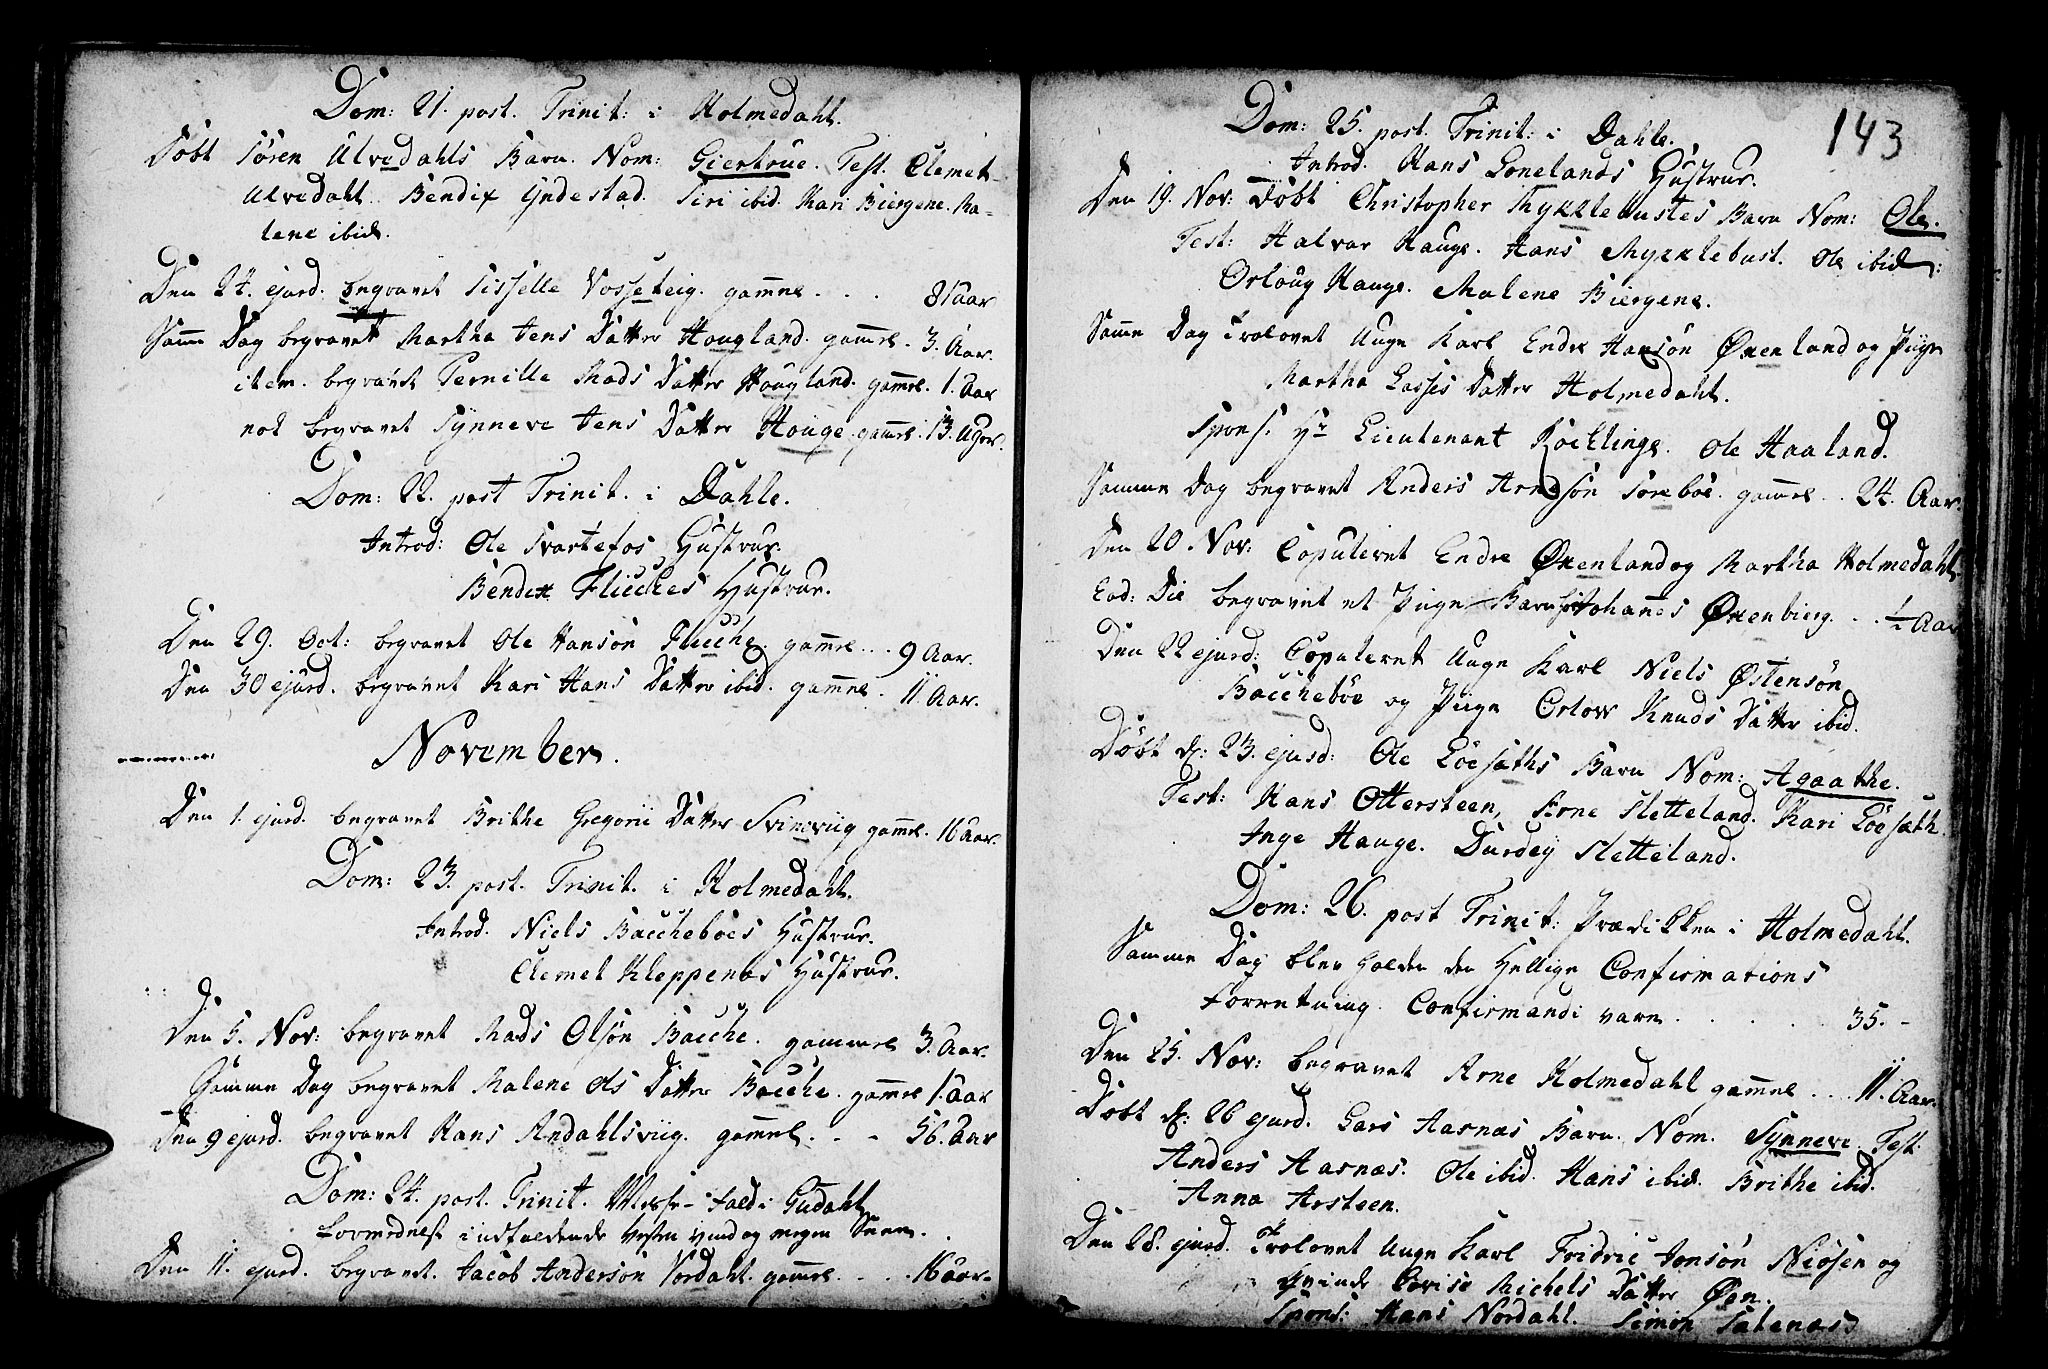 Dom: 21. post. Trinit: i Holmedahl.
Döbt Sören Ulvedahls Barn. Nom: Giertrue. Test. Clemet
Ulvedahl. Bendix Yndestad. Siri ibid. Kari Biergene. Ma-
lene ibid.
Den 24. ejusd. begravet Sisselle Vosseteig. gammel . . . 81 aar
Samme Dag begravet Martha Jens Datter Hougland. gammel. 3. Aar.
item. begravet Pernille Mads Datter Hougland. gammel. 1. Aar
nok begravet Synneve Jens Datter Houge. gammel. 13. Uger.
Dom: 22. post Trinit. i Dahle.
Introd: Ole Svartefos Hustrue.
Bendix Flecches Hustrue.
Den 29. Oct: begravet Ole Hansön Flecche. gammel . . . 9 Aar.
Den 30 ejusd. begravet Kari Hans Datter ibid. gammel . 11. Aar.
November.
Den 1. ejusd. begravet Brithe Gregorii Datter Svinevüg gammel. 16 Aar.
Dom: 23. post. Trinit. i Holmedahl.
Introd. Niels Baccheböes Hustrue.
Clemet Kleppenæs Hustrue.
Den 5. Nov: begravet Mads Olsön Bacche. gammel 3. Aar.
Samme Dag begravet Malene Ols Datter Bacche. gammel 1. aar
Den 9 ejusd. begravet Hans Andahlsvüg. gammel. - - 56. Aar
Dom: 24. post. Trinit. Messe-Fald i Gudahl
formedelst indfaldende Vesten vind og megen Snee.
Den 11. ejusd. begravet. Jacob Andersön Nordahl. gammel . . . 16 aar.
143
Dom: 25. post. Trinit: i Dahle.
Introd. Hans Lonelands Hustrue.
Den 19. Nov: döbt Christopher Mykklebustes Barn Nom: Ole.
Test: Halvor Hauge. Hans Mykklebust. Ole ibid:
Orloug Hauge. Malene Biergene.
Samme Dag Trolovet Unge Karl Endre Hansön Øxenland og Pige
Martha Lasses Datter Holmedahl.
Spons. Hr Lieutenant Ole Haaland.
Samme Dag begravet Anders Arnesön Söreböe. gammel . . 24. Aar.
Den 20. Nov: Copuleret Endre Øxenland og Martha Holmedahl.
Eod: Die begravet et Pige-Barn Johannes Øxenbierg. . . ½ Aar
Den 22 ejusd: Copuleret Unge Karl Niels Østensön
Bacchebøe og Pige Orlow Knuds Datter ibid.
Döbt d: 23. ejusd: Ole Löesæths Barn Nom: Agaathe.
Test: Hans Ottersteen, Arne Sletteland. Kari Löesæth.
Inge Hauge. Durdey Sletteland.
Dom: 26. post Trinit: Prædikken i Holmedahl.
Samme Dag blev holden den Hellige Confirmations
Forretning. Confirmandi vare . . . . . 35. -
Den 25. Nov: begravet Arne Holmedahl gammel . . . 11. Aar.
Döbt d: 26 ejusd. Lars Aarnæs Barn. Nom. Synneve. Test.
Anders Aarnæs. Ole ibid. Hans ibid. Brithe ibid.
Anna Arsteen.
Den 28. ejusd. Trolovet Unge Karl Fridric Jonsön Niösen og
Qvinde Lovise Michels Datter Øen.
Spons: Hans Nordahl. Simon Salenæs